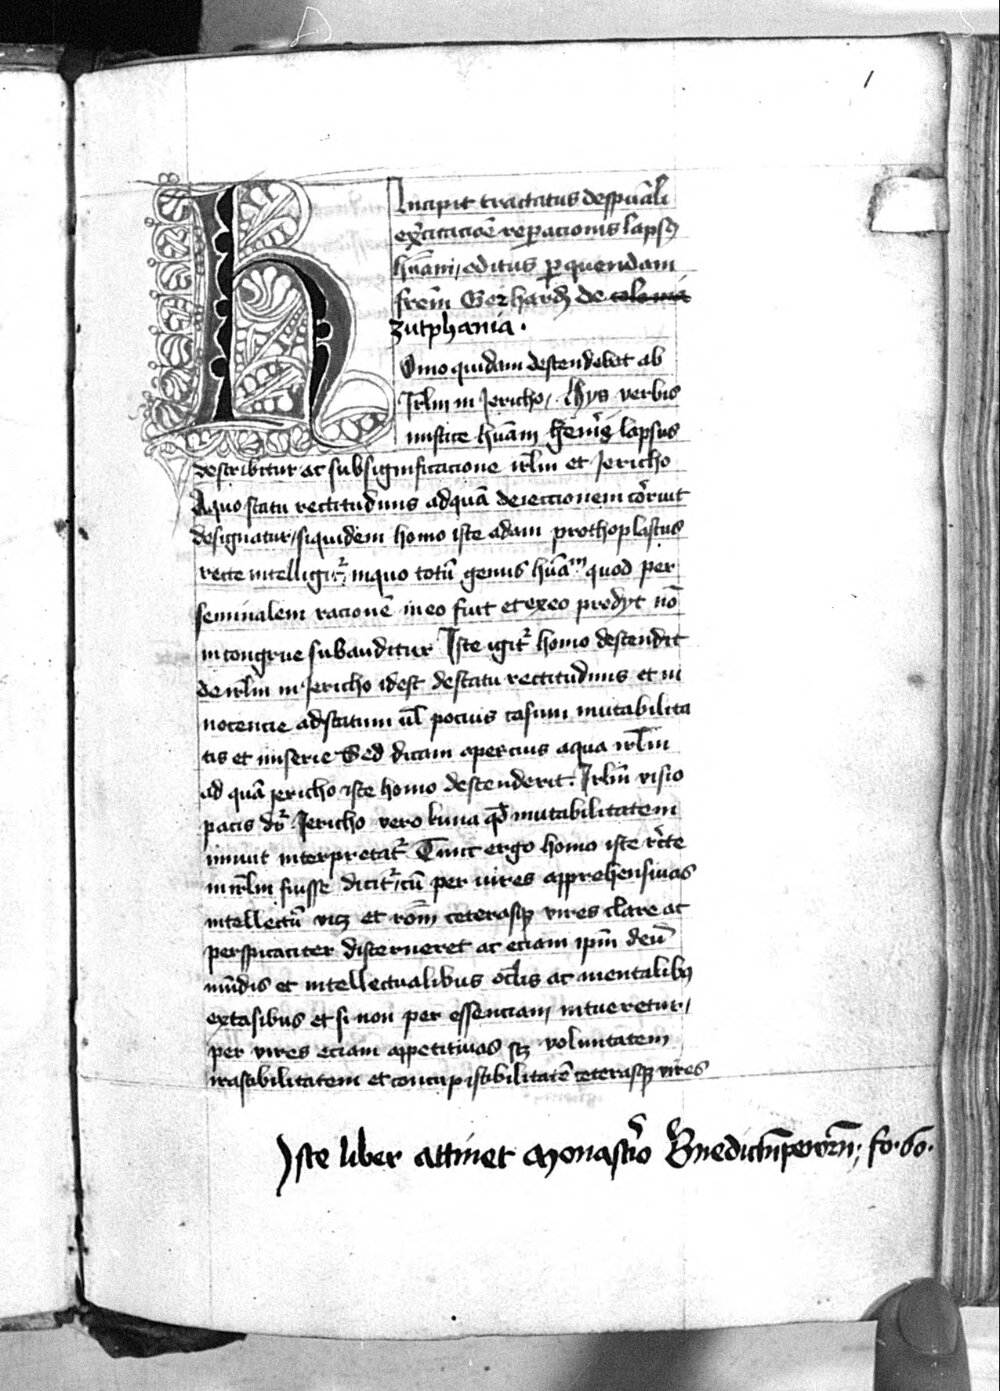 1
Incipit tractatus de sp̄uāli
ex̄citacōe rep̄acionis lapsꝰ
hūani, editus ꝑ quendam
frēm Gerhardꝫ de colonia
zutphania.
Homo quidam descendebat ab
Irl̄m in Jericho, Hijs verbis
mistice hūam gen̄is lapsus
describitur ac sub significacione irl̄m et Jericho
A quo statu rectitudinis ad quā deieccionem cōrruit
designatur, siquidem homo iste adam prothoplastus
recte intelligit᷑, in quo totū genus hūaᵐ quod per
seminalem racionē in eo fuit et ex eo prodyt nō
incongrue subauditur Iste igit᷑ homo descendit
de irl̄m in Jericho id est de statu rectitudinis et in
nocencie ad statum ul̄ pocius casum mutabilita
tis et miserie Sed dicam apercius a qua irl̄m
ad quā jericho iste homo descenderit. Irl̄m visio
pacis dr̄ Jericho vero luna qd̄ mutabilitatem
innuit interpretat᷑. Tunc ergo homo iste rc̄te
in irl̄m fuisse dicit᷑, cū per vires apprehensivas
intellectū vicꝫ et rōm ceterasqꝫ vires clare ac
perspicaciter discerneret ac eciam ip̄m deū
mūdis et intellectualibus oc̄lis ac mentalibꝫ
extasibus et si non per essenciam, intueretur,
per vires eciam appetitivas scꝫ voluntatem
irascibilitatem et concupiscibilitatē ceterasqꝫ vires
Iste liber attinet Monast̄io Bn̄edictn̄peworn̄; fo. 60.